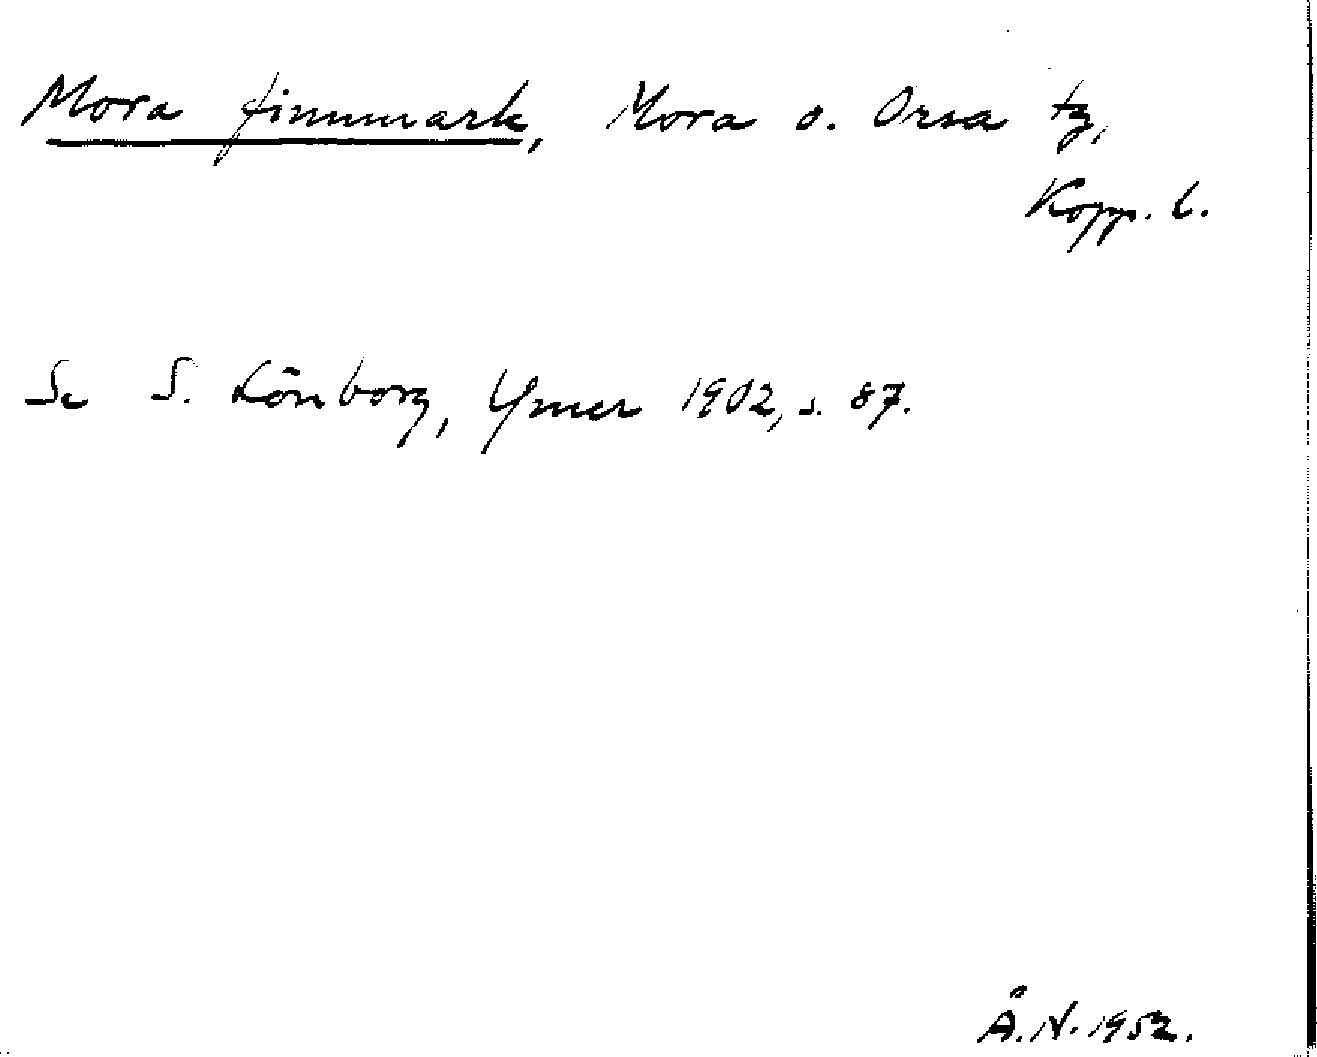 Mora finnmark, Mora o. Orsa tg,
Kopp. l.
Se S. Lönborg, Ymer 1902, s. 87.
Å.N. 1952.